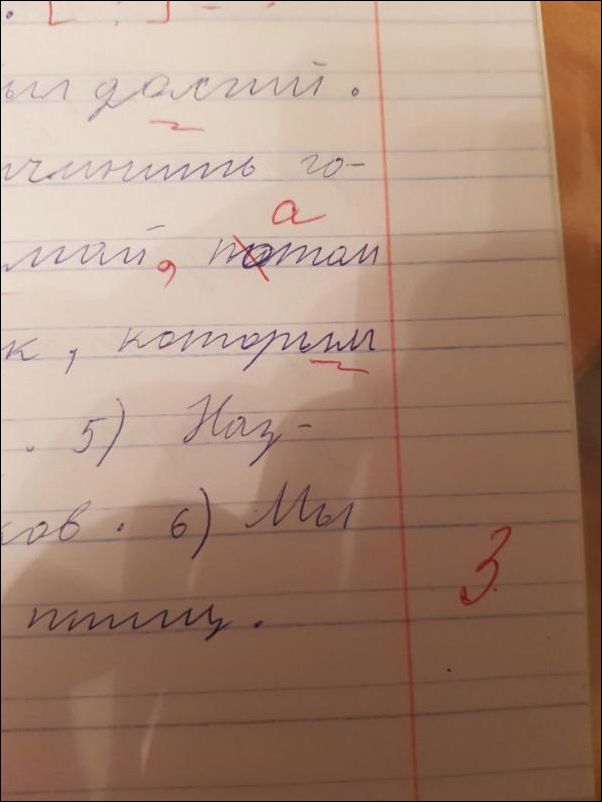 был долгий.
чинить го-
май, патом
к, которым
. 5) Наз-
ков. 6) Мы
птиц.
3